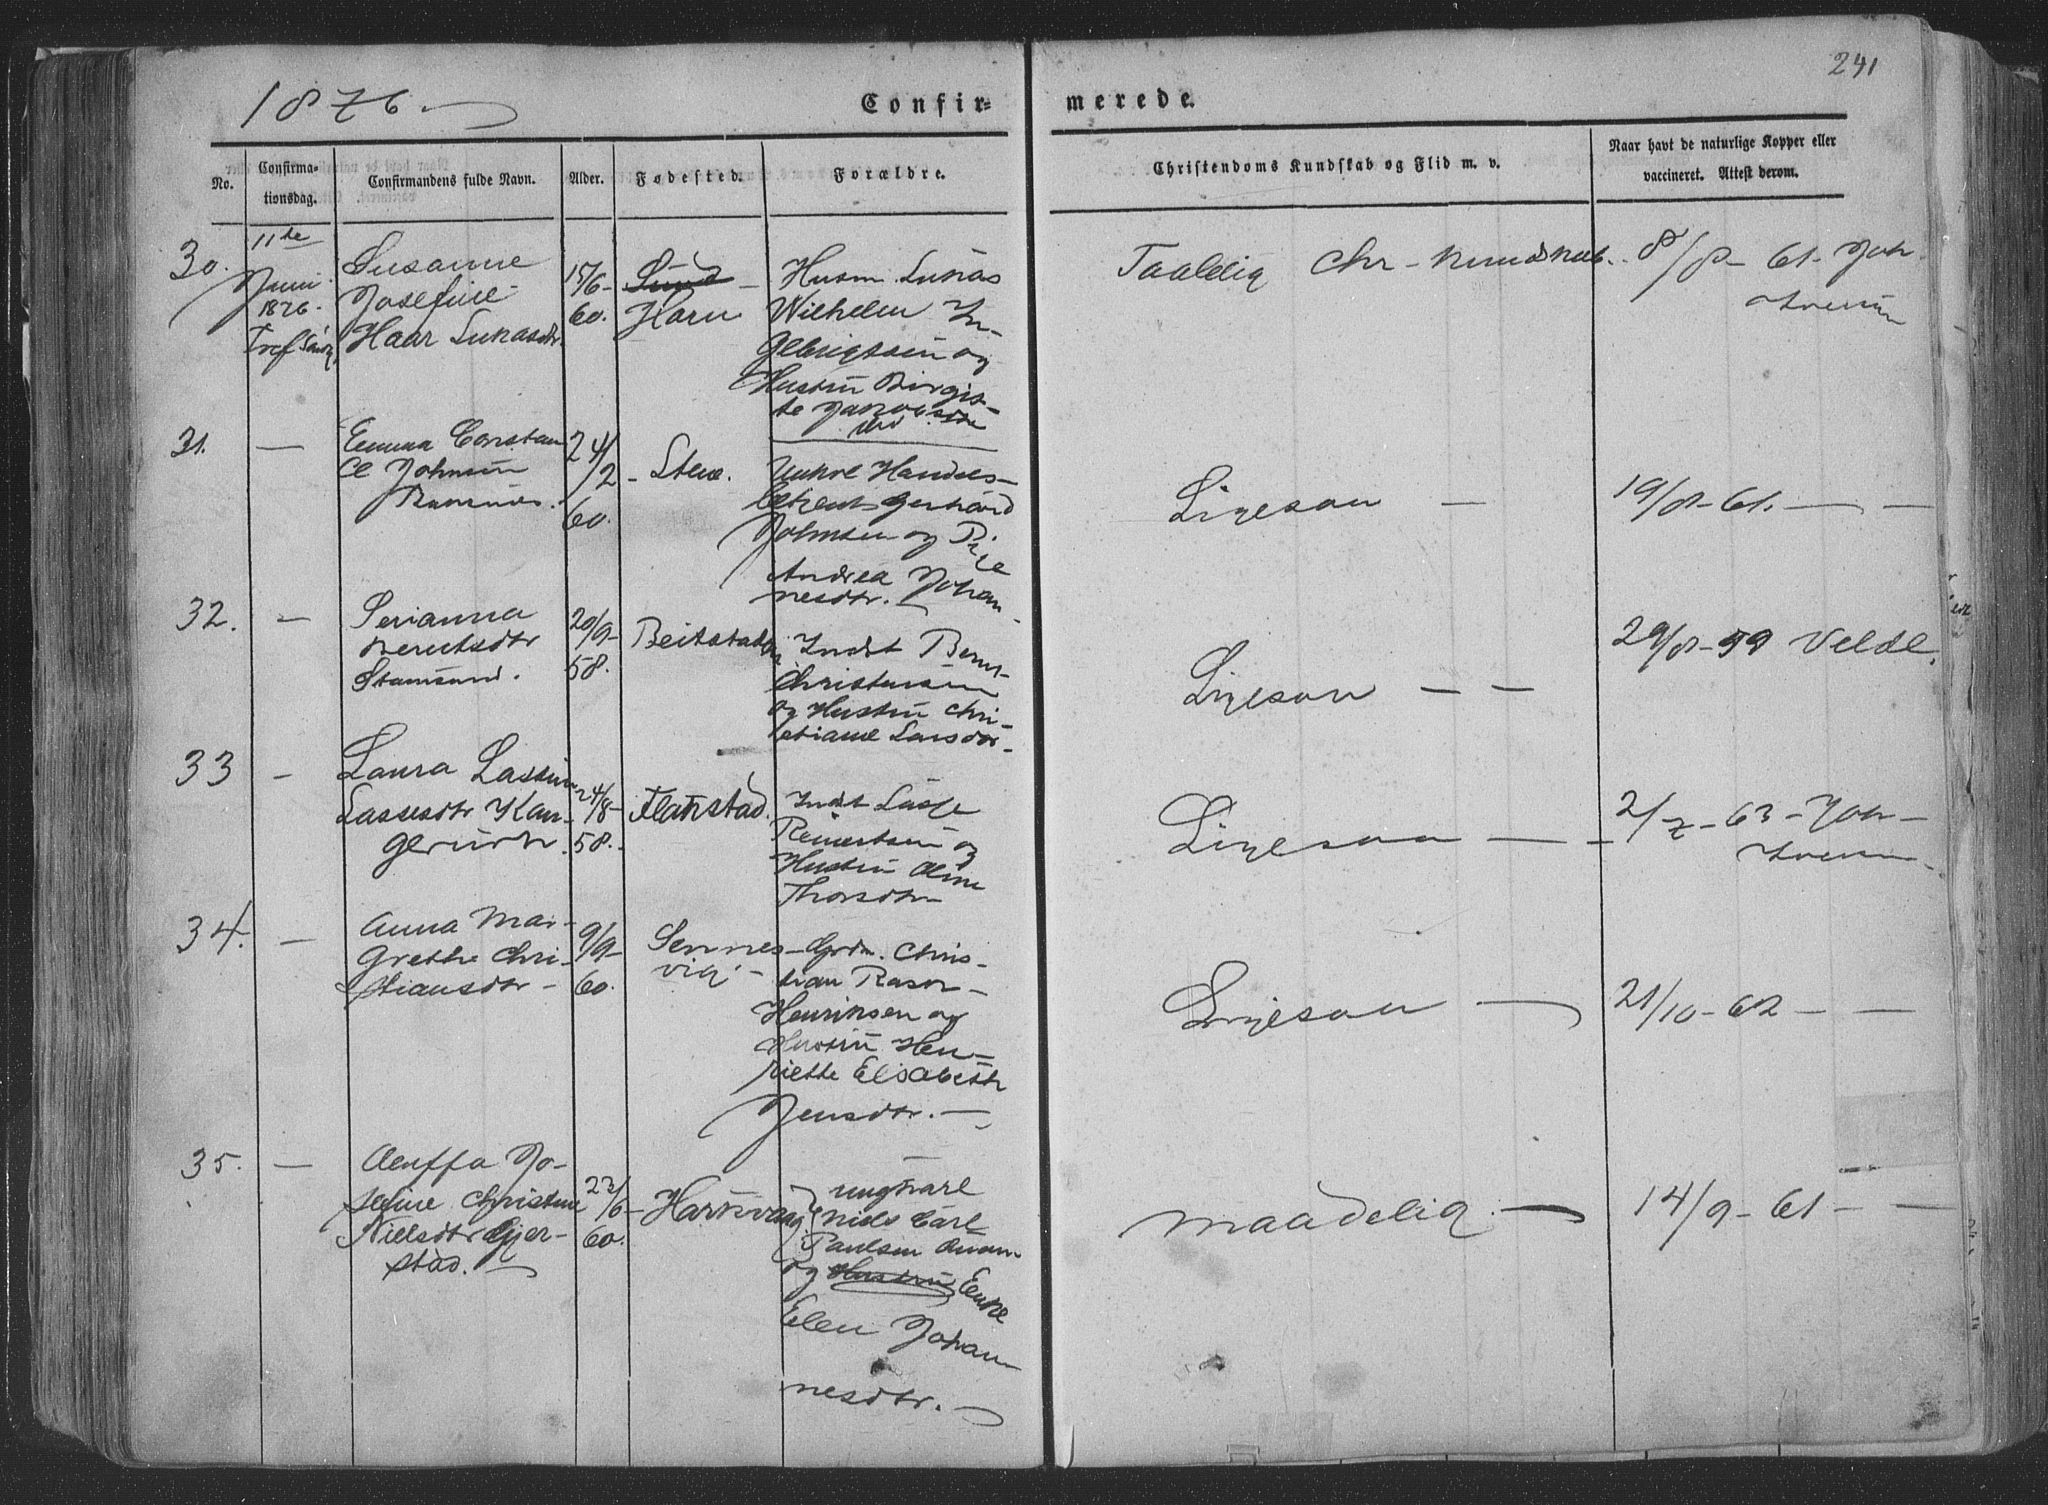 241
1876
Confirmerede.
No.
Confirmationsdag.
Confirmandens fulde Navn.
Alder.
Fødested.
Forældre.
Christendoms Kundskab og Flid m. v.
Naar havt de naturlige Kopper eller
vaccineret. Attest derom.
30.
11te
Juni
1876.
Susanne
Josefine
Haar Lukasdtr.
15/6-
60.
Sund
Horn
Husm. Lukas
Wilhelm In-
gebrigtsen og
Hustru Birgit-
te Jakobsdtr
Taalelig Chr-kundskab.
8/8-61. Joh
Iversen
31.
—
Emma Constan
ce Johnsen
Ramsnes.
24/2-
60.
Stene.
Ungkl Handels-
betjent Gerhard
Johnsen og Pige
Andrea Johan
nesdtr.
Ligesaa —
19/8-61. — —
32.
—
Serianna
Berntsdtr
Stamsund.
20/9-
58.
Beitstaden
Indst Bernt
Christensen
og Hustru Chri-
stiane Larsdtr-
Ligesaa — —
29/8-59 Veldl.
33
—
Laura Lastine
Lassesdtr Kan-
gerurtr.
24/8-
58.
Flakstad.
Indst Lasse
Reinertsen og
Hustru Oline
Thorsdtr
Ligesaa — —
2/7-63-Joh-
Iversen
34.
—
Anna Mar-
grethe Chri-
stiansdtr-
9/9-
60.
Sennes-
vig.
Grdm. Chris-
tian Rasor-
Henriksen og
Hustru Hen-
riette Elisabeth
Jensdtr. —
Ligesaa —
21/10-62 — —
35.
—
Josefine Christine
Nielsdtr Gjer-
stad.
23/6-
60.
Ungkarl
Niels Carl
Paulsen
og Hustru Enke
Elen Johan
nesdtr. —
Maadelig. —
14/9-61- —